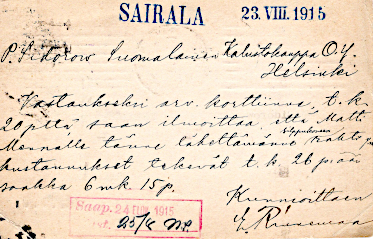 SAIRALA 23. VIII. 1915
P. Sidorow Suomalainen Kalustokauppa O.Y.
Helsinki
Vastaukseksi arv. korttiinne, t.k.
20 pltä saan ilmoittaa, että Matti
tänne lähettämänne
kustannukset tekevät t.k. 26 p:ään
saakka 6 mk. 15 p.
Kunnioittaen
Saap. 24 1915
25/8